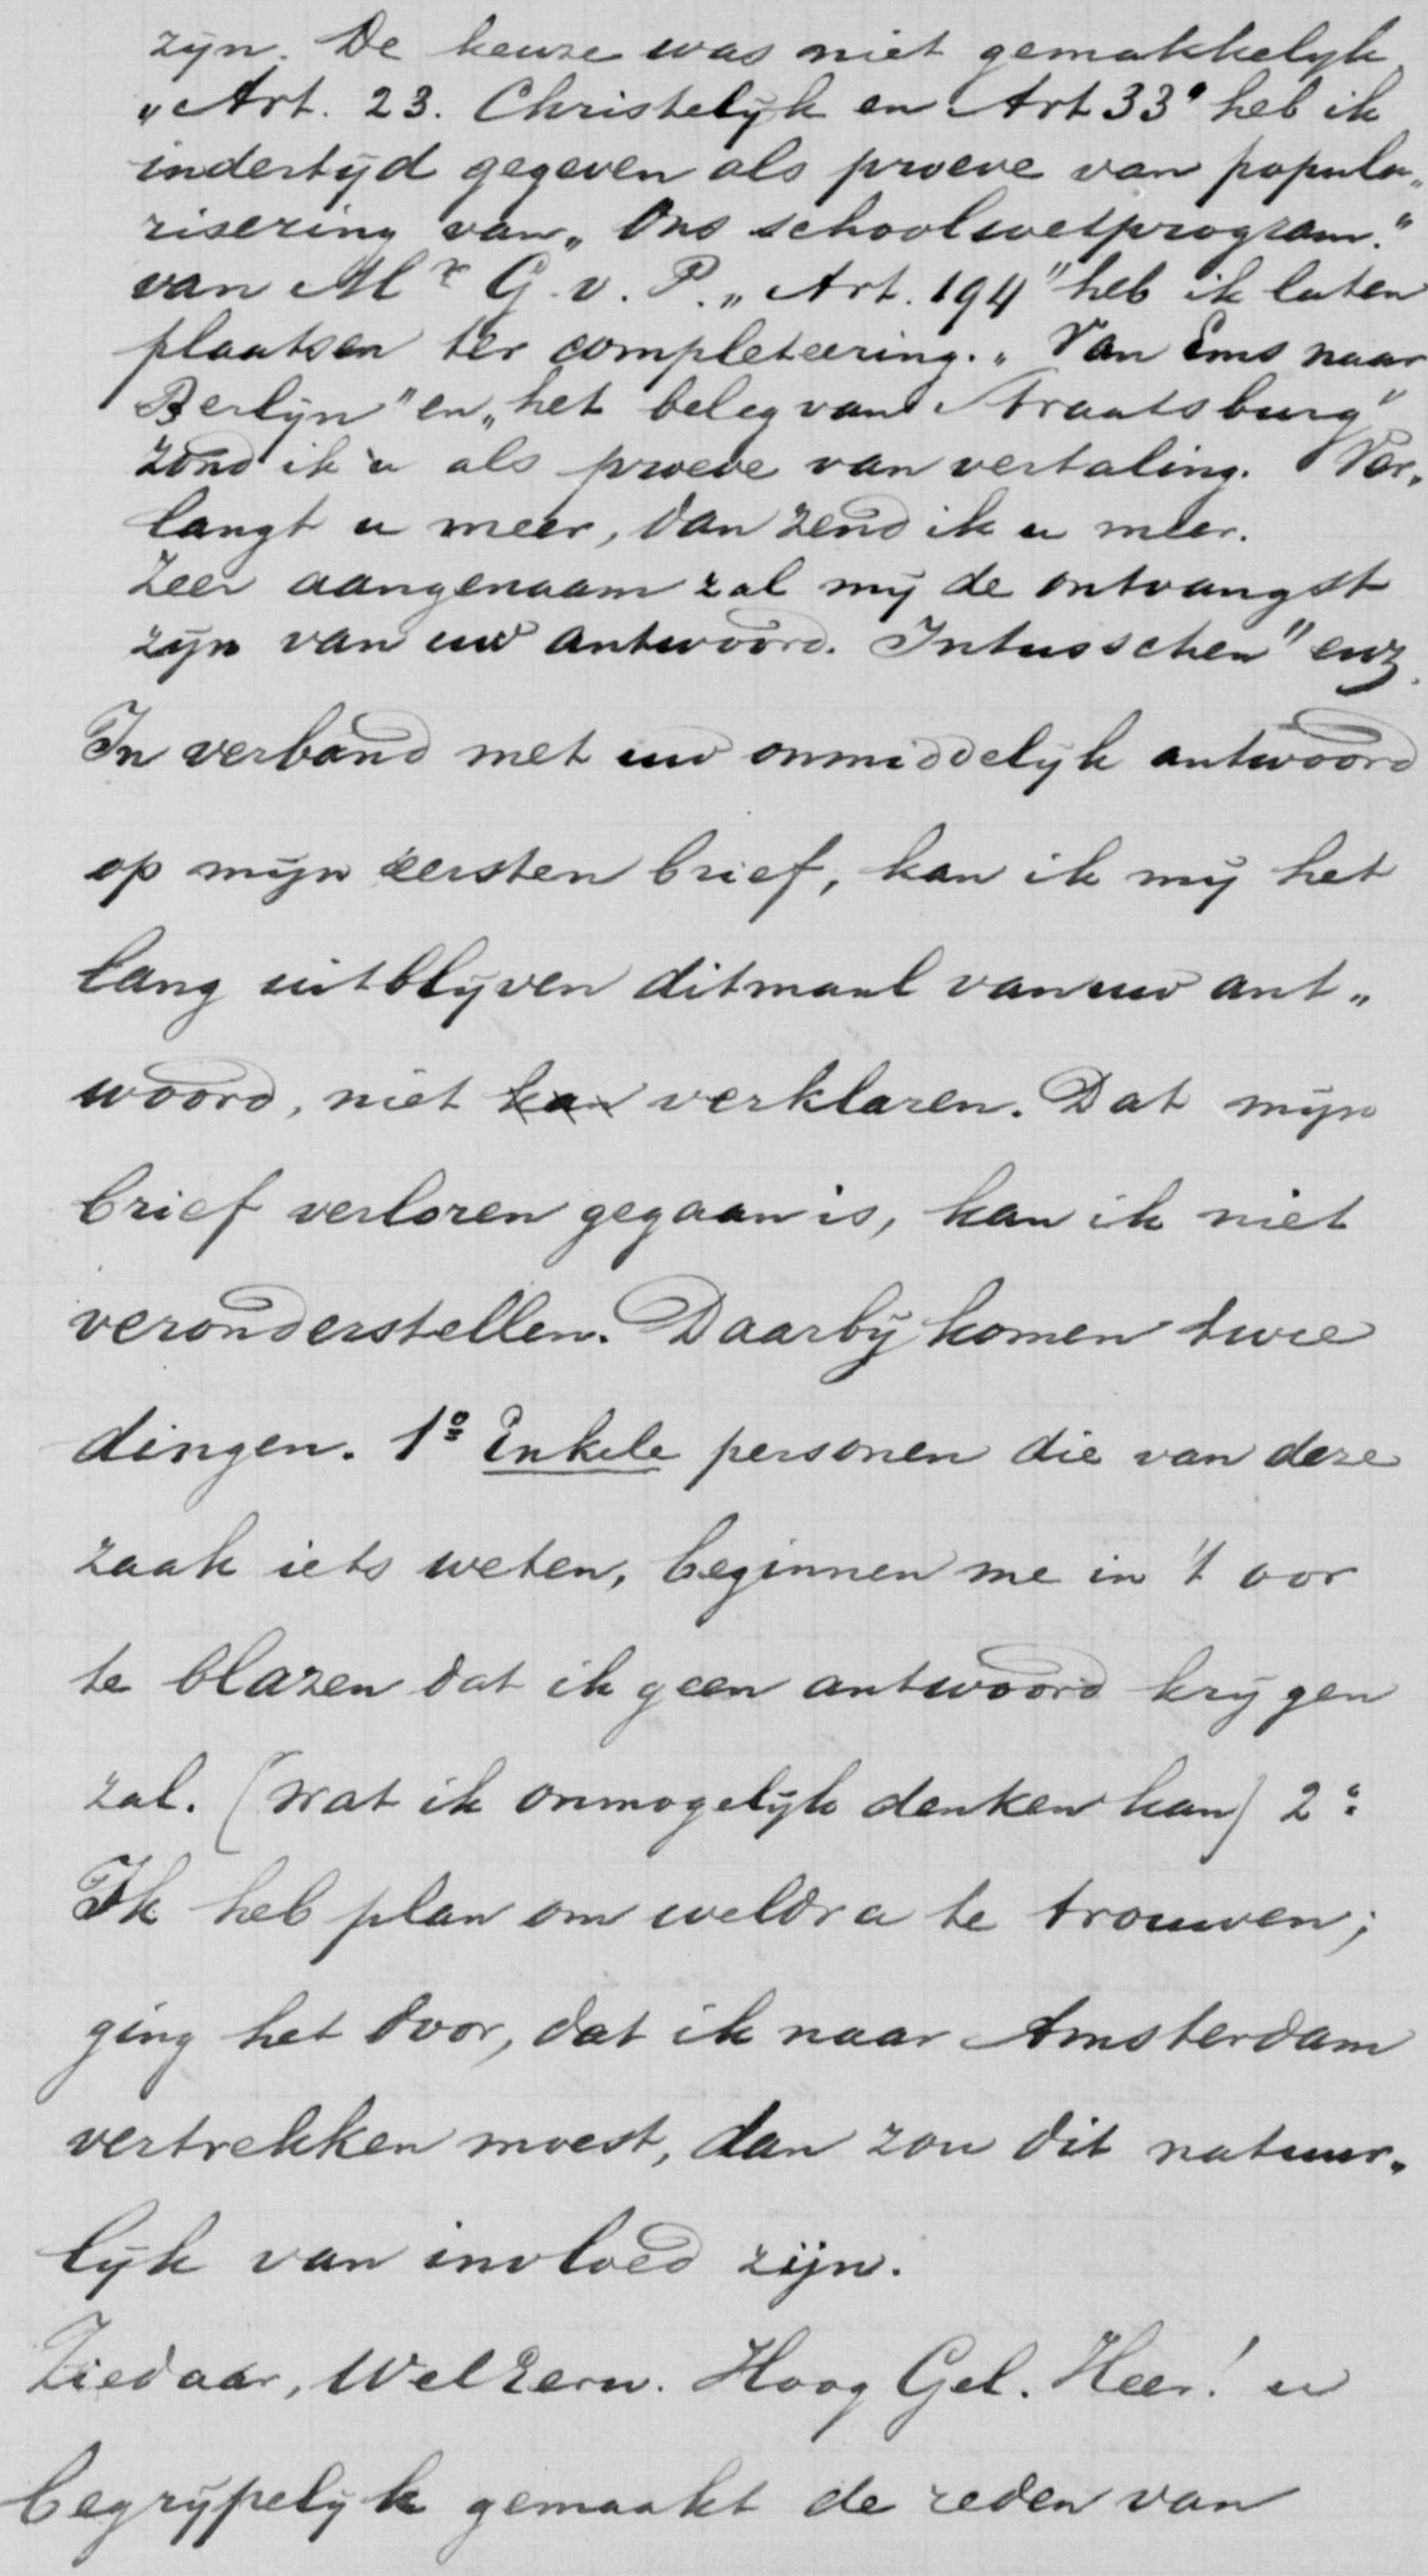 zijn. De keuze was niet gemakkelijk
„Art. 23. Christelijk en Art 33" heb ik
indertijd gegeven als proeve van popula„
risering van „Ons schoolwetprogram."
van Mr G. v. P. „Art. 194" heb ik laten
plaatsen ter completeering. „Van Ems naar
Berlijn" en „het beleg van Straatsburg"
zond ik u als proeve van vertaling. Ver„
langt u meer, dan zend ik u meer.
Zeer aangenaam zal mij de ontvangst
zijn van uw antwoord. Intusschen" enz.
In verband met uw onmiddelijk antwoord
op mijn eersten brief, kan ik mij het
lang uitblijven ditmaal van uw ant„
woord, niet kan verklaren. Dat mijn
brief verloren gegaan is, kan ik niet
veronderstellen. Daarbij komen twee
dingen. 1º Enkele personen die van deze
zaak iets weten, beginnen me in 't oor
te blazen dat ik geen antwoord krijgen
zal. (wat ik onmogelijk denken kan) 2º
Ik heb plan om weldra te trouwen;
ging het door, dat ik naar Amsterdam
vertrekken moest, dan zou dit natuur„
lijk van invloed zijn.
Ziedaar, WelEerw. Hoog Gel. Heer! u
begrijpelijk gemaakt de reden van